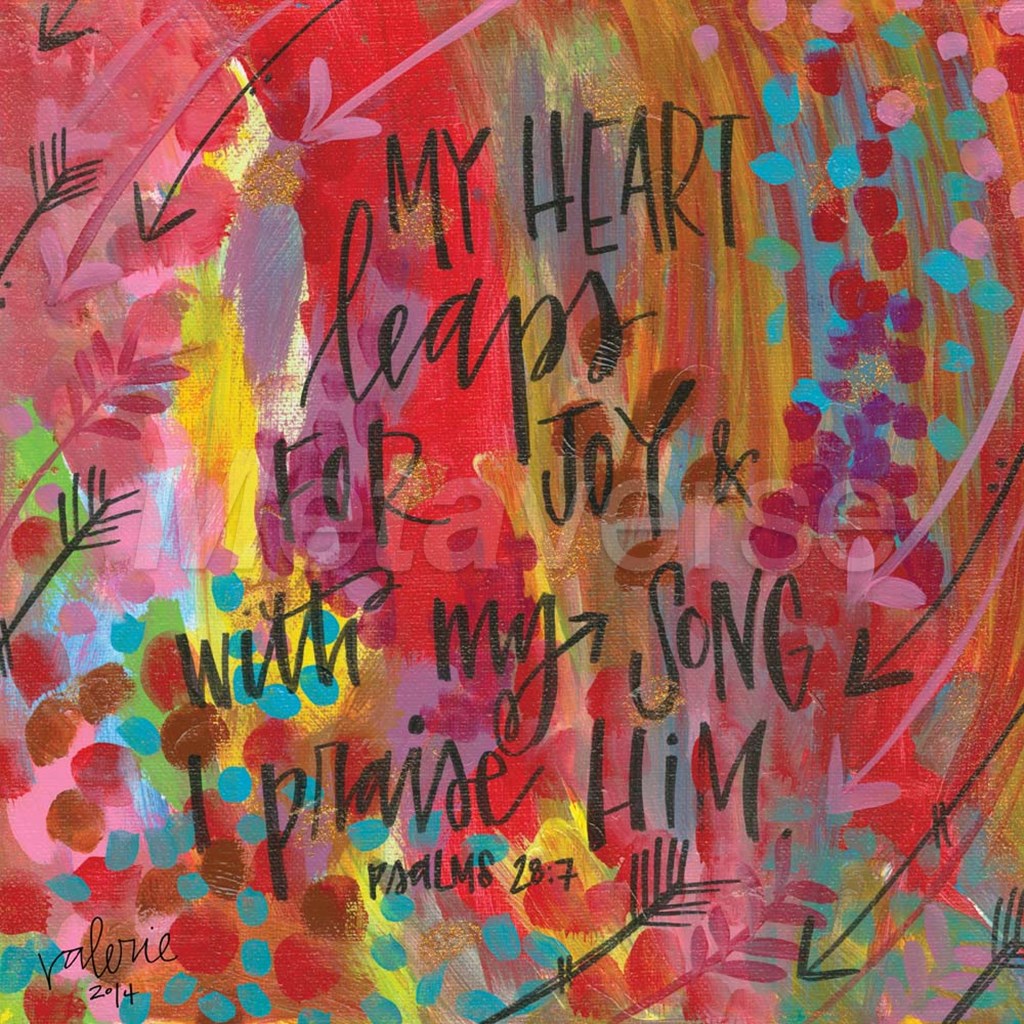 MY HEART
leaps
FOR JOY &
with my SONG
I praise HiM.
PSALMS 28:7
valerie
2014
Metaverse